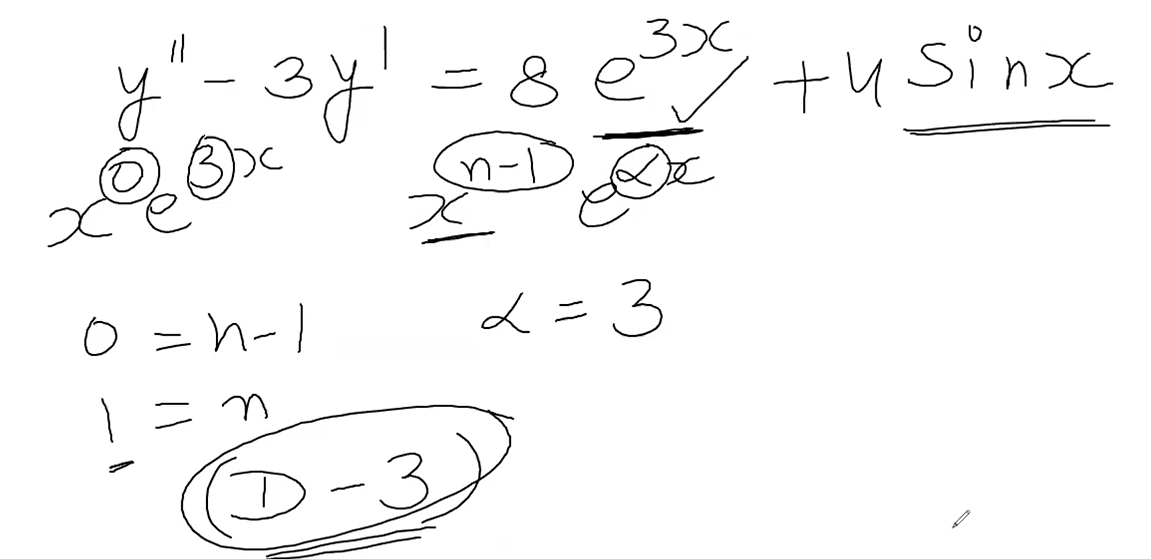 y'' - 3y' = 8 e^{3x} + 4 sin x
x^0 e^{3x} x^{n-1} e^{αx}
0 = n-1 α = 3
1 = n
(D - 3)